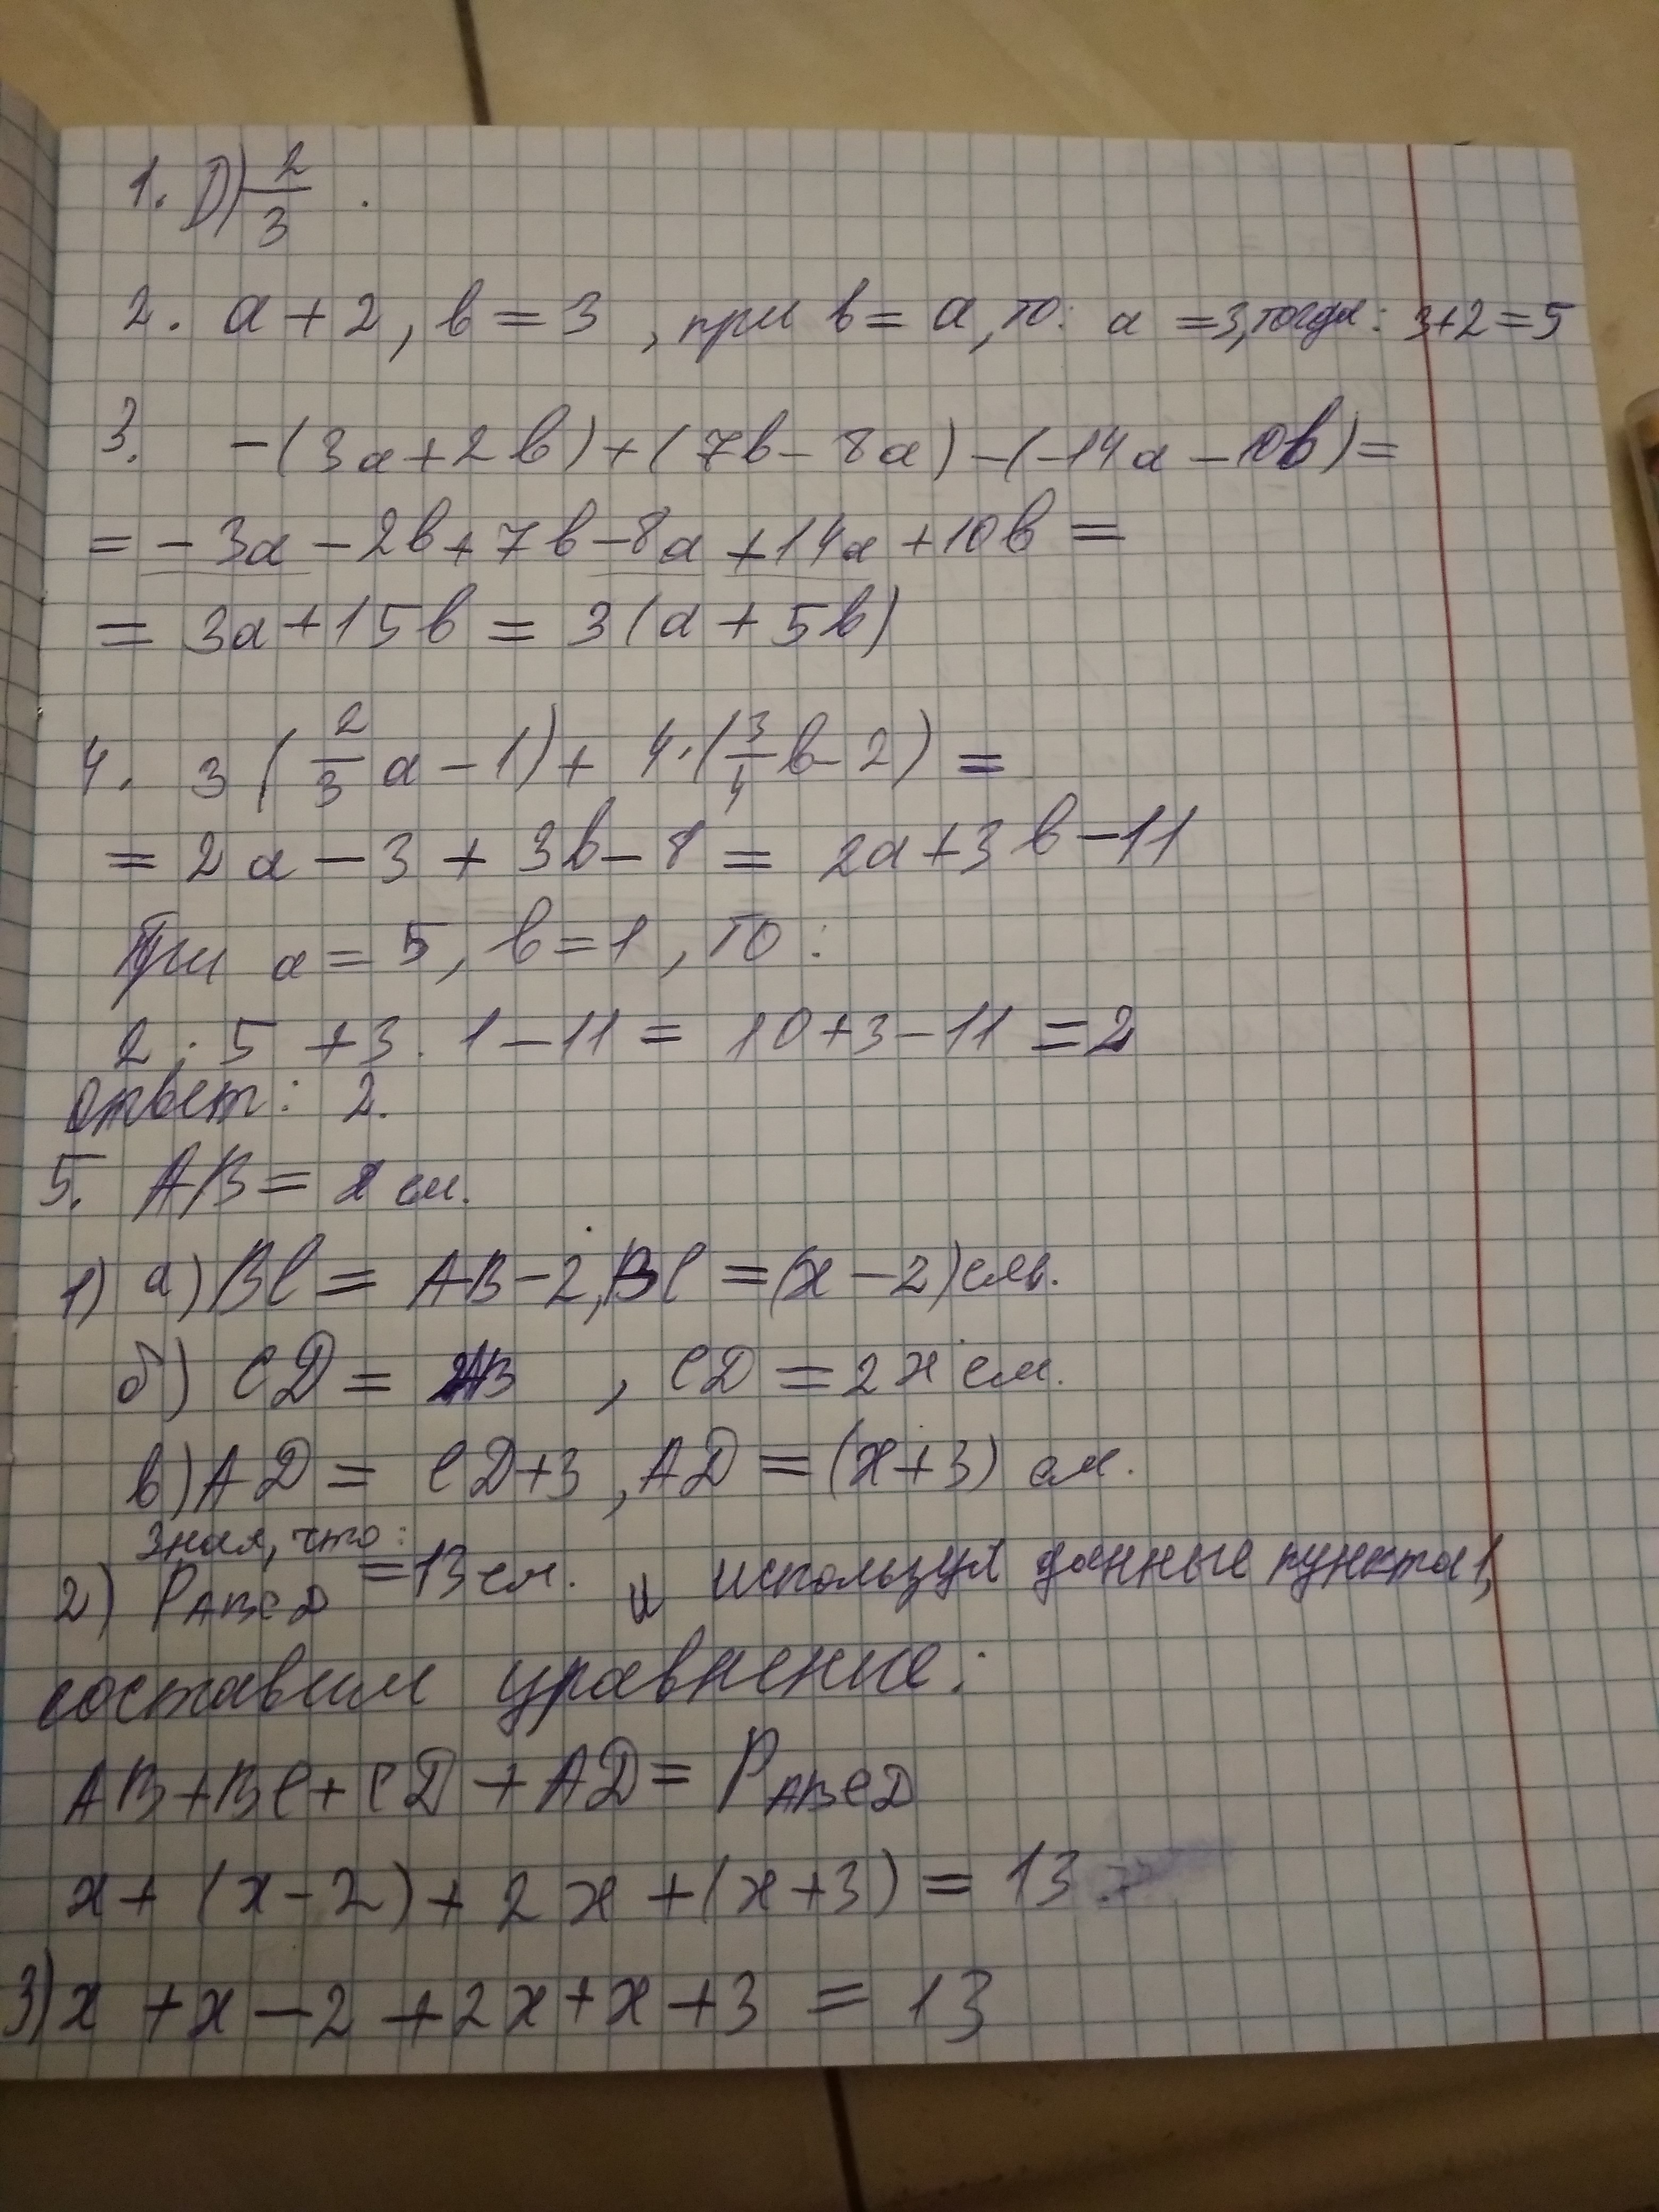 1. D) 2/3 .
2. a + 2, b = 3, при b = a, то: a = 3, тогда: 3+2=5
3. -(3a+2b)+(7b-8a)-(-14a-10b)=
= -3a-2b+7b-8a+14a+10b=
= 3a+15b = 3(a+5b)
4. 3(2/3 a-1)+4·(3/4 b-2)=
= 2a-3+3b-8 = 2a+3b-11
При a=5, b=1, то:
2·5+3·1-11=10+3-11=2
Ответ: 2.
5. AB = x см.
1) а) BC = AB-2, BC = (x-2) см.
б) CD = 2AB, CD = 2x см.
в) AD = CD+3, AD = (x+3) см.
Зная, что:
2) PABCD = 13 см. и используя данные пункта 1,
составим уравнение:
AB+BC+CD+AD=PABCD
x+(x-2)+2x+(x+3)=13
3) x+x-2+2x+x+3=13